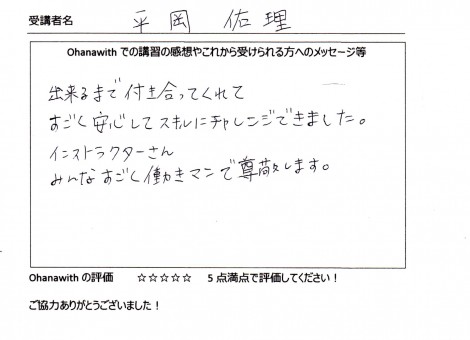 受講者名 平岡 佑理
Ohanawith での講習の感想やこれから受けられる方へのメッセージ等
出来るまで付き合ってくれて
すごく安心してスキルにチャレンジできました。
インストラクターさん
みんなすごく働きマンで尊敬します。
Ohanawith の評価 ☆☆☆☆☆ 5 点満点で評価してください！
ご協力ありがとうございました！